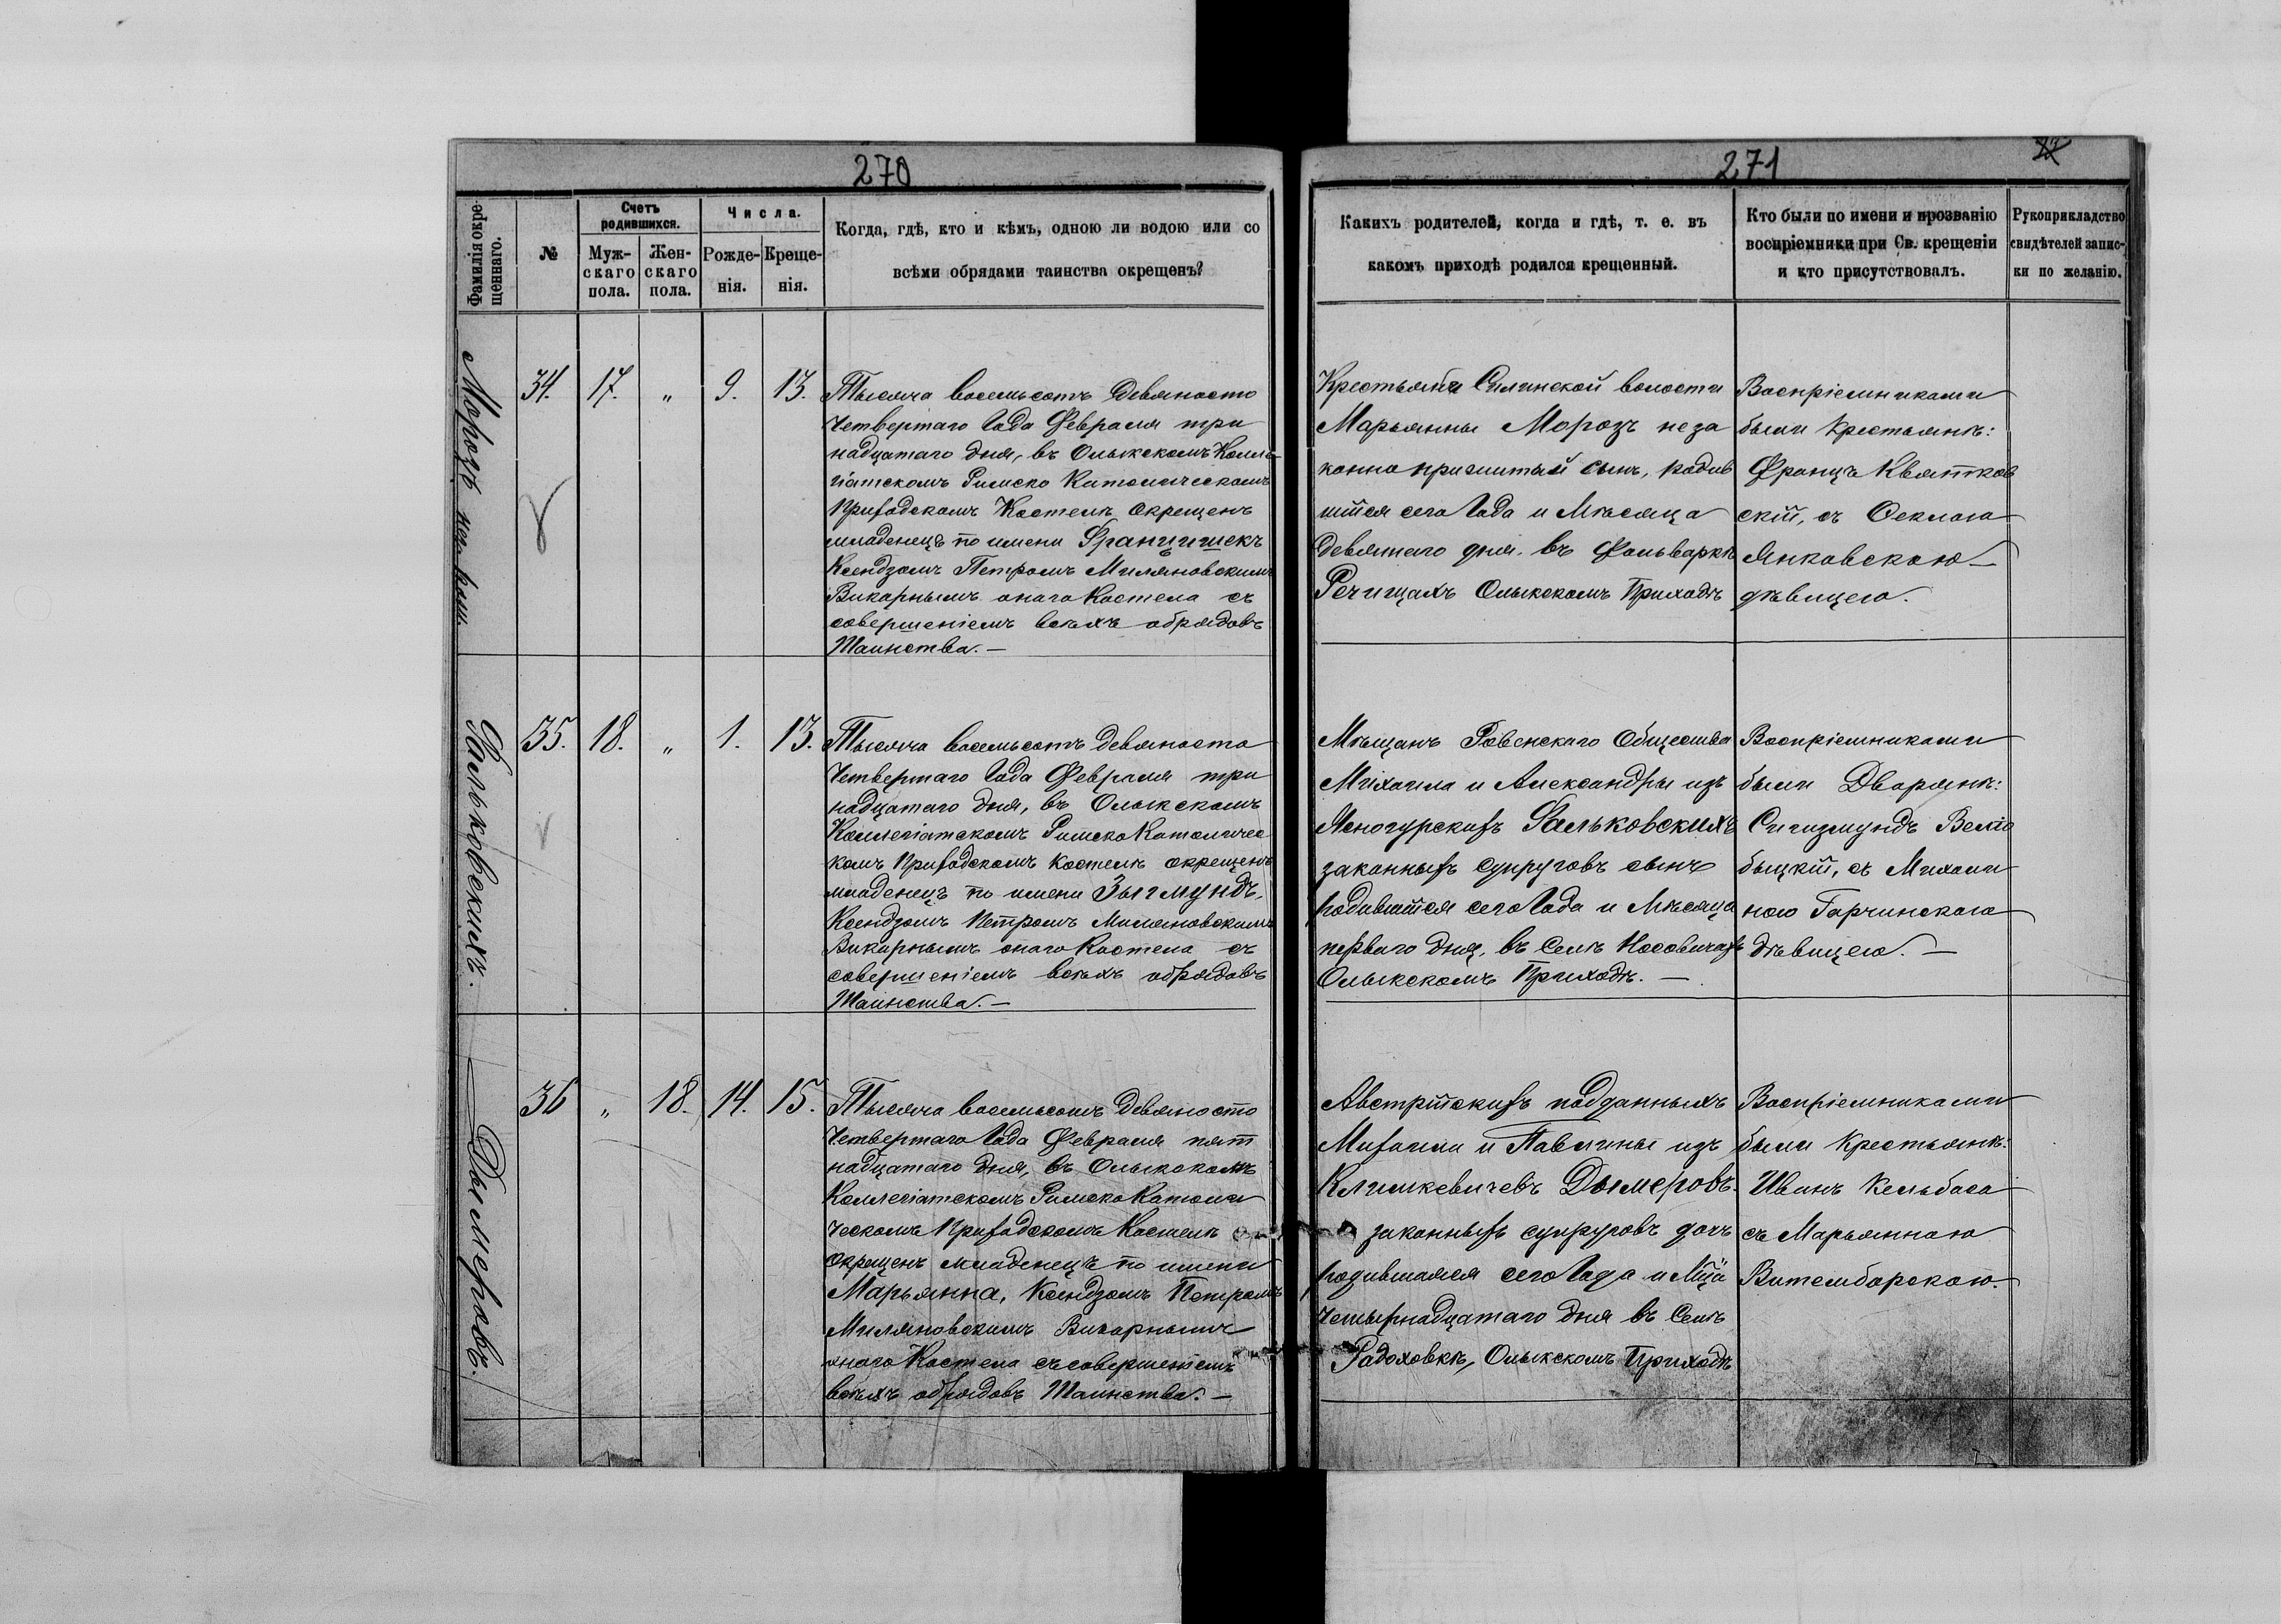 270
Фамилія окре-
щеннаго.
№
Счетъ
родившихся.
Муж-
скаго
пола.
Жен-
скаго
пола.
Числа.
Рожде-
нія.
Креще-
нія.
Когда, гдѣ, кто и кѣмъ, одною ли водою или со
всѣми обрядами таинства окрещенъ?
Морозъ
34. 17. „ 9. 13.
Тысяча восемьсотъ девяносто
четвертаго Года Февраля три
надцатаго дня, въ Олыкскомъ Колле-
гіатскомъ Римско Католическомъ
Приходскомъ Костелѣ окрещенъ
младенецъ по имени Францишекъ
Ксендзомъ Петромъ Миляновскимъ
Викарнымъ онаго Костела съ
совершеніемъ всѣхъ обрядовъ
Таинства.—
Фальковскихъ.
35. 18. „ 1. 13.
Тысяча восемьсотъ девяноста
Четвертаго Года Февраля три
надцатаго дня, въ Олыкскомъ
Коллегіатскомъ Римско Католичес
комъ Приходскомъ Костелѣ окрещенъ
младенецъ по имени Зыгмундъ,
Ксендзомъ Петромъ Миляновскимъ
Викарнымъ онаго Костела съ
совершеніемъ всѣхъ обрядовъ
Таинства.—
Дымеровъ.
36 „ 18. 14. 15.
Тысяча восемьсотъ девяносто
Четвертаго Года Февраля пят
надцатаго дня, въ Олыкскомъ
Коллегіатскомъ Римско Католи
ческомъ Приходскомъ Костелѣ
окрещенъ младенецъ по имени
Марьянна, Ксендзомъ Петромъ
Миляновскимъ Викарнымъ
онаго Костела съ совершеніемъ
всѣхъ обрядовъ Таинства.—
271
Какихъ родителей, когда и гдѣ, т. е. въ
какомъ приходѣ родился крещенный.
Кто были по имени и прозванію
воспріемники при Св. крещеніи
и кто присутствовалъ.
Рукоприкладство
свидѣтелей запис-
ки по желанію.
Крестьянки Силинской волости
Марьянны Морозъ неза
конно прижитый сынъ, родив
шійся сего Года и Мѣсяца
девятаго дня въ Фольваркѣ
Речищахъ Олыкскомъ Приходѣ
Воспріемниками
были Крестьянъ:
Францъ Квятков
скій, съ Оеклою
Янковскою—
дѣвицею.
Мѣщанъ Ровенскаго Общества
Михаила и Александры изъ
Фальковскихъ
законныхъ супруговъ сынъ
родившійся сего Года и Мѣсяца
перваго дня, въ Селѣ Носовичахъ
Олыкскомъ Приходѣ.—
Воспріемниками
были Дворянъ:
Сигизмундъ Велио
быцкій, съ Михали
ною Гарчинскою
дѣвицею.—
Австрійскихъ подданныхъ
Михаила и Павлины изъ
Климкевичевъ Дымеровъ
законныхъ супруговъ дочь
родившаяся сего Года и Мца
четырнадцатаго дня въ Селѣ
Радоховкѣ, Олыкскомъ Приходѣ
Воспріемниками
были Крестьянъ:
Иванъ Кельбаса
съ Марьянною
Витембарскою.